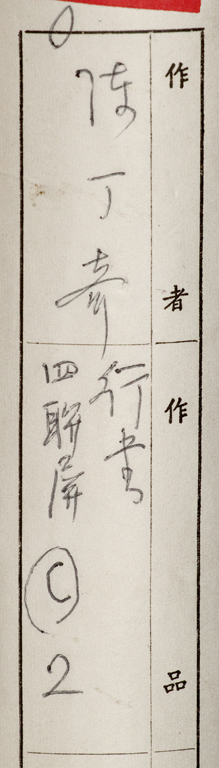 作者
陈丁奇
作品
行書
四聯屏
C
2